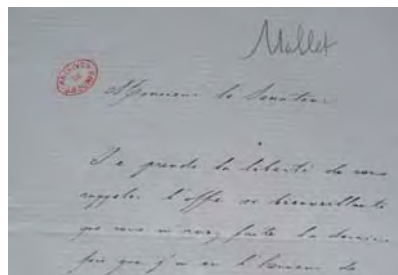 Mallet
Monsieur le Senateur
Je prends la liberté de vous
rappeler l'offre si bienveillante
que vous m'avez faite la dernière
fois que j'ai eu l'honneur de